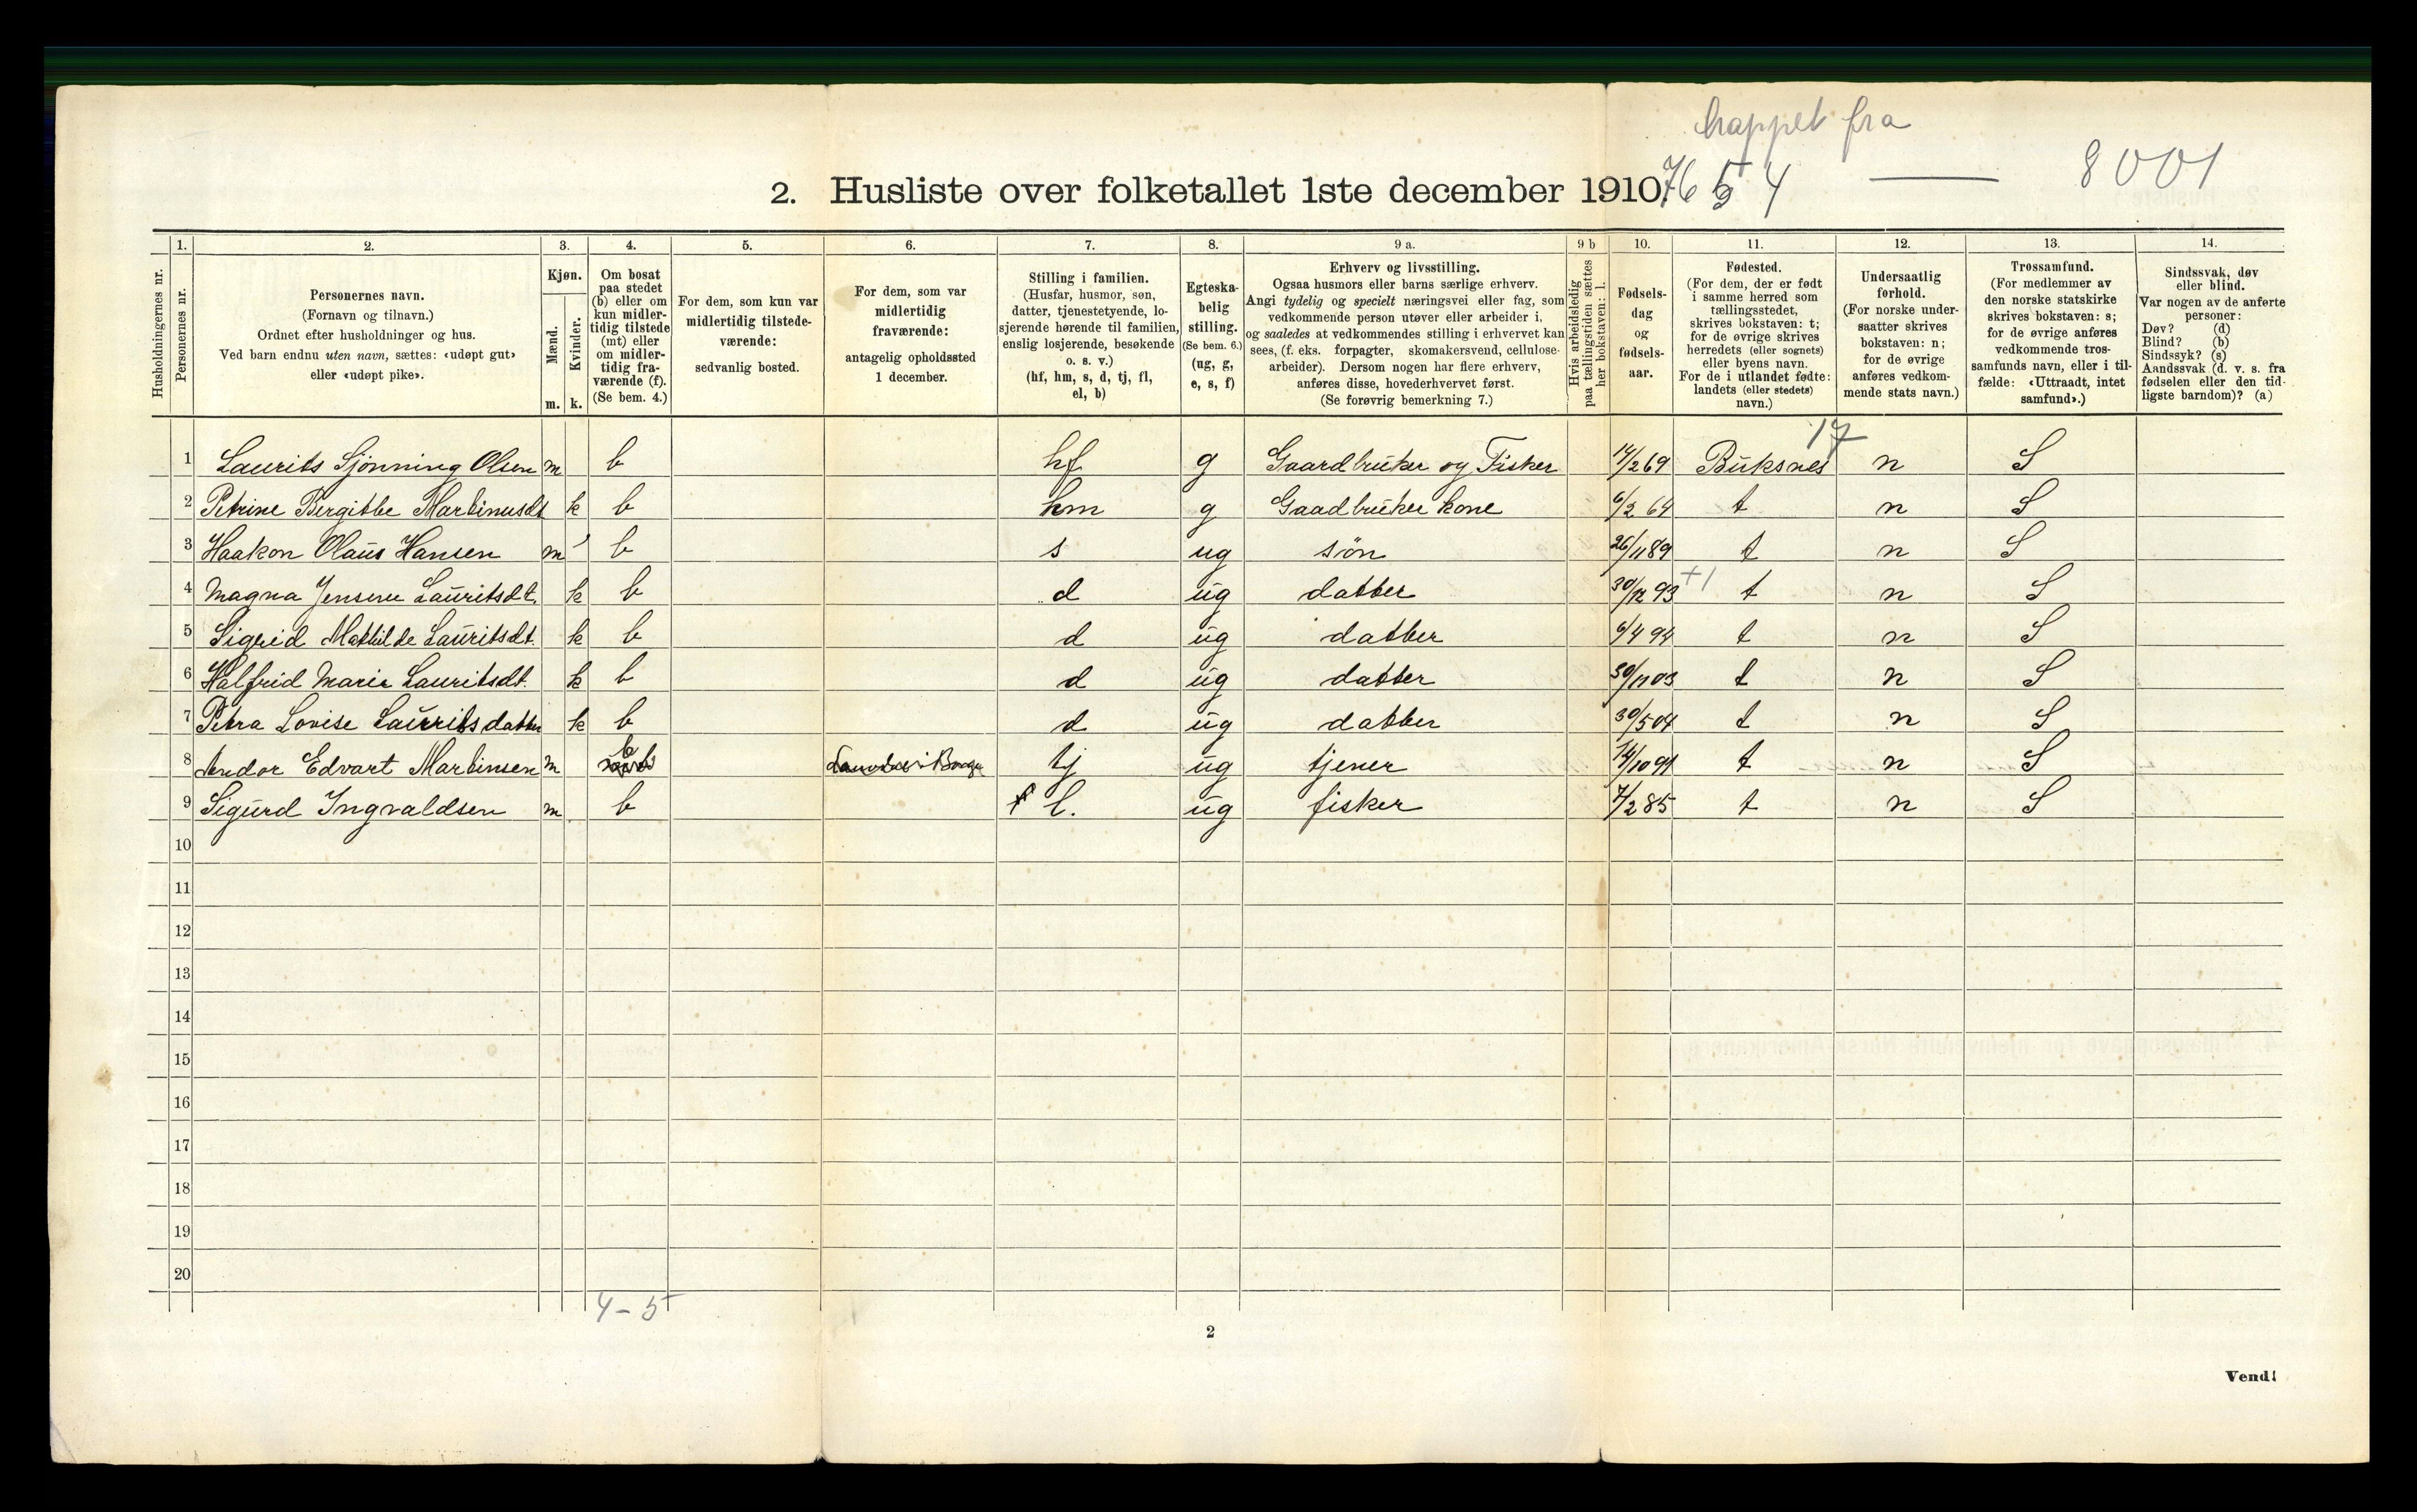 happet fra
2. Husliste over folketallet 1ste december 1910. 7654 — 8001
1. 2. 3. 4. 5. 6. 7. 8. 9 a. 9 b 10. 11. 12. 13. 14.
Husholdningernes nr.
Personernes nr.
Personernes navn.
(Fornavn og tilnavn.)
Ordnet efter husholdninger og hus.
Ved barn endnu uten navn, sættes: «udøpt gut»
eller «udøpt pike».
Kjøn.
Mænd.
Kvinder.
m. k.
Om bosat
paa stedet
(b) eller om
kun midler-
tidig tilstede
(mt) eller
om midler-
tidig fra-
værende (f).
(Se bem. 4.)
For dem, som kun var
midlertidig tilstede-
værende:
sedvanlig bosted.
For dem, som var
midlertidig
fraværende:
antagelig opholdssted
1 december.
Stilling i familien.
(Husfar, husmor, søn,
datter, tjenestetyende, lo-
sjerende hørende til familien,
enslig losjerende, besøkende
o. s. v.)
(hf, hm, s, d, tj, fl,
el, b)
Egteska-
belig
stilling.
(Se bem. 6.)
(ug, g,
e, s, f)
Erhverv og livsstilling.
Ogsaa husmors eller barns særlige erhverv.
Angi tydelig og specielt næringsvei eller fag, som
vedkommende person utøver eller arbeider i,
og saaledes at vedkommendes stilling i erhvervet kan
sees, (f. eks. forpagter, skomakersvend, cellulose-
arbeider). Dersom nogen har flere erhverv,
anføres disse, hovederhvervet først.
(Se forøvrig bemerkning 7.)
Hvis arbeidsledig
paa tællingstiden sættes
her bokstaven: l.
Fødsels-
dag
og
fødsels-
aar.
Fødested.
(For dem, der er født
i samme herred som
tællingsstedet,
skrives bokstaven: t;
for de øvrige skrives
herredets (eller sognets)
eller byens navn.
For de i utlandet fødte:
landets (eller stedets)
navn.)
Undersaatlig
forhold.
(For norske under-
saatter skrives
bokstaven: n;
for de øvrige
anføres vedkom-
mende stats navn.)
Trossamfund.
(For medlemmer av
den norske statskirke
skrives bokstaven: s;
for de øvrige anføres
vedkommende tros-
samfunds navn, eller i til-
fælde: «Uttraadt, intet
samfund».)
Sindssvak, døv
eller blind.
Var nogen av de anførte
personer:
Døv? (d)
Blind? (b)
Sindssyk? (s)
Aandssvak (d. v. s. fra
fødselen eller den tid-
ligste barndom)? (a)
17
1 Laurits Sjönning Olsen m b hf g Gaardbruker og Fisker 14/2 69 Buksnes n S
2 Petrine Bergitbe Martinusdt k b hm g Gaadbruker kone 6/2 64 t n S
3 Haakon Olaus Hansen m b s ug sön 26/11 89 t n S
4 Magna Jensine Lauritsdt. k b d ug datter 30/12 93 +1 t n S
5 Sigrid Mathilde Lauritsdt. k b d ug datter 6/4 94 t n S
6 Halfrid Marie Lauritsdt. k b d ug datter 30/11 03 t n S
7 Petra Lovise Lauritsdatter k b d ug datter 30/5 04 t n S
8 Andor Edvart Martinsen m b tj ug tjener 14/10 91 t n S
9 Sigurd Ingvaldsen m b f l. ug fisker 7/2 85 t n S
10
11
12
13
14
15
16
17
18
19
20
4-5
2
Vend!